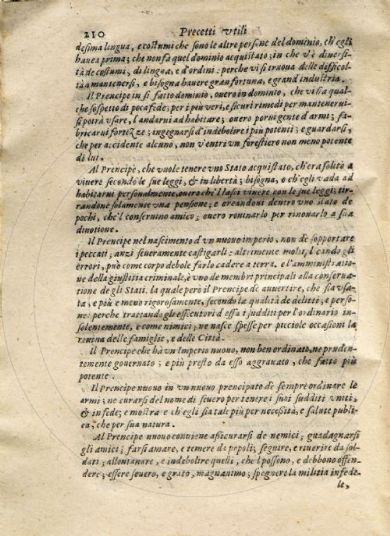 210 Precetti vtili
desima lingua, e costumi che sono le altre persone del dominio, ch'egli
hauea prima; che non fà quel dominio acquistato, in che v'è diuersi-
tà de costumi, di lingua, e d'ordini: perche vi si troua delle difficol-
tà a mantenersi, e bisogna hauere gran fortuna, e grand'industria.
Il Prencipe in sì fatto dominio, ouero in dominio, che vi sia qual-
che sospetto di poca fede: per i più veri, e sicuri rimedi per mantenerui-
si potrà vsare, l'andarui ad habitare; ouero porui gente d'armi; fa-
bricarui fortezze; ingegnarsi d'indebolire i più potenti; e guardarsi,
che per accidente alcuno, non v'entri vn forestiero non meno potente
di lui.
Al Prencipe, che vuole tenere vno Stato acquistato, ch'era solito a
viuere secondo le sue leggi, & in libertà; bisogna, o ch'egli vada ad
habitarui personalmente, ouero che'l lasci viuere con le sue leggi; tir-
randone solamente vna pensione; e creandoui dentro vno stato de
pochi, che'l conseruino amico; ouero rouinarlo per rinouarlo a sua
diuotione.
Il Prencipe nel nascimento d'vn nuouo imperio, non de sopportare
i peccati, anzi seueramente castigarli: altrimente molti, l'errori, può come corpo debole farlo cadere a terra. e l'amministratio-
ne della giustitia criminale, è vno de membri principali alla conserua-
tione de gli Stati. la quale però il Prencipe de auuertire, che sia vsa-
ta, e più e meno rigorosamente, secondo la qualità de delitti, e perso-
ne: perche trattando gli essecutori d'essa i sudditi per l'ordinario in-
solentemente, e come nimici; ne nasce spesse per picciole occasioni la
ruuina delle famiglie, e delle Città.
Il Prencipe che hà vn Imperio nuouo, non ben ordinato, ne pruden-
temente gouernato; e più presto da esso aggrauato, che fatto più
potente.
Il Prencipe nuouo in vn nuouo prencipato dè sempre ordinare le
armi; ne curarsi del nome di seuero per tenere i suoi sudditi vniti,
& in fede; e mostra e ch'egli sia tal più per necessità, e salute publi-
ca, che per sua natura.
Al Prencipe nuouo conuiene assicurarsi de nemici; guadagnarsi
gli amici; farsi amare, e temere da popoli, seguire, e riuerire da sol-
dati; allontanare, e indebolire quelli, che'l possono, e debbono offen-
dere; essere seuero, e grato, magnanimo; spegnere la militia infede-
le,